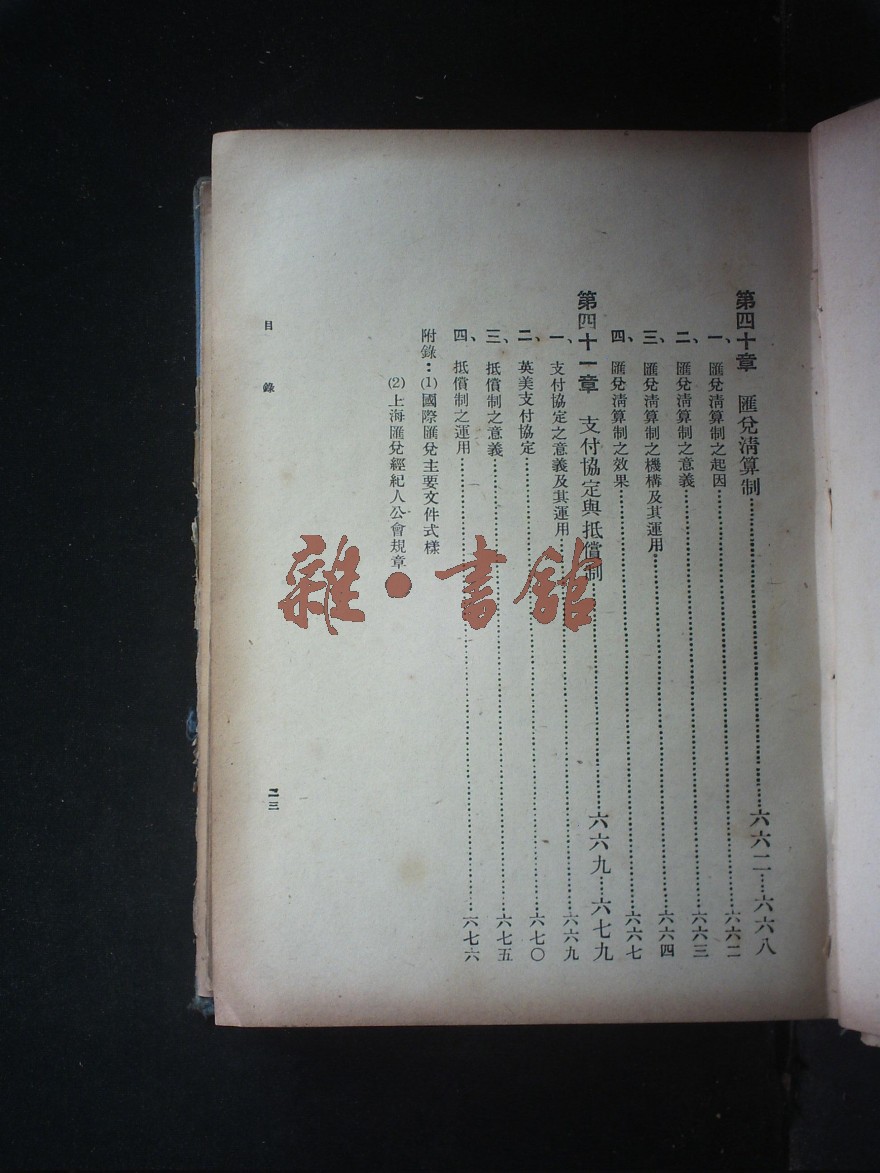 第四十章　匯兌淸算制……六六二……六六八
一、匯兌淸算制之起因……六六二
二、匯兌淸算制之意義……六六三
三、匯兌淸算制之機構及其運用……六六四
四、匯兌淸算制之效果……六六七
第四十一章　支付協定與抵償制……六六九……六七九
一、支付協定之意義及其運用……六六九
二、英美支付協定……六七〇
三、抵償制之意義……六七五
四、抵償制之運用……六七六
附錄：(1)國際匯兌主要文件式樣
(2)上海匯兌經紀人公會規章
目錄
二三
雜·書館